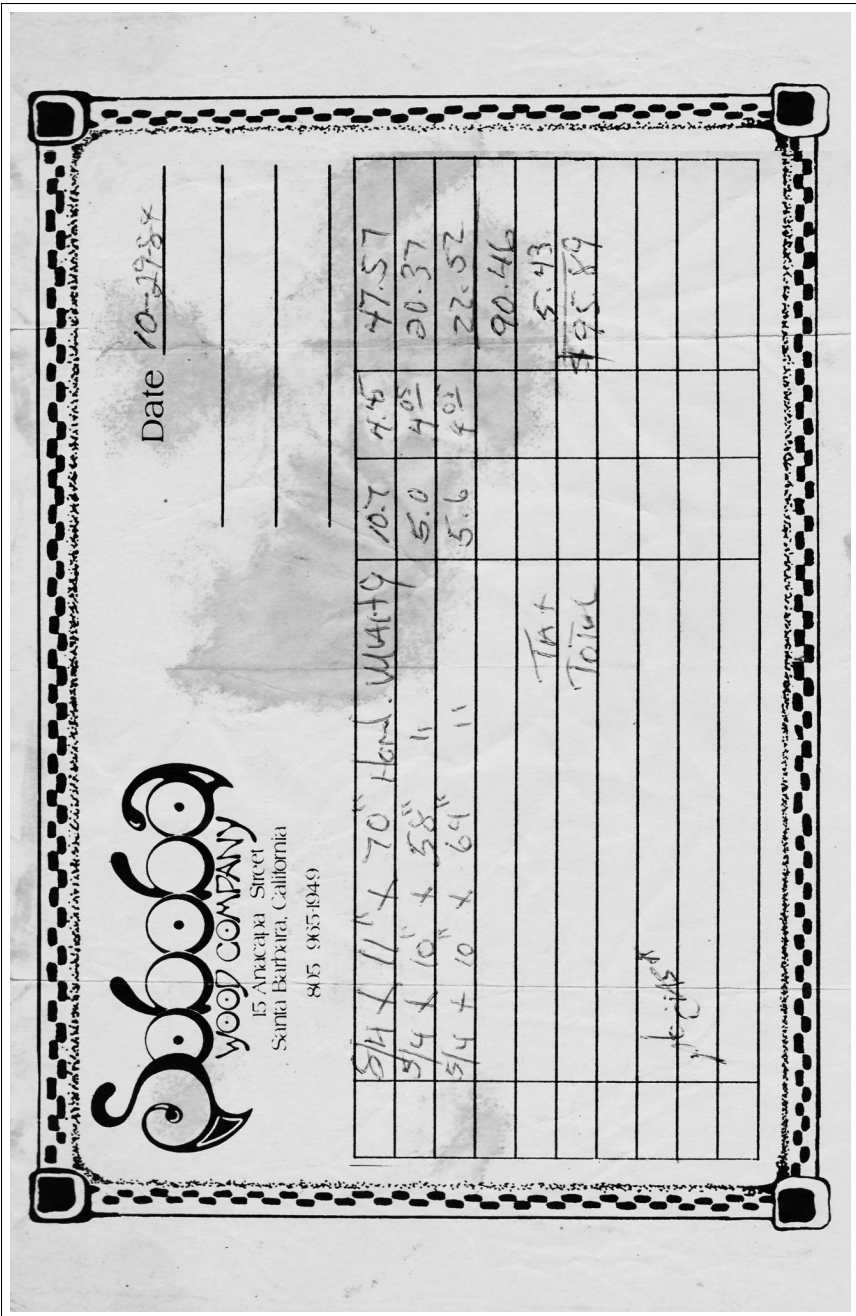 WOOD COMPANY
15 Anacapa Street
Santa Barbara, California
805 965-1949
Date 10-29-84
8/4 x 11" x 70" Hond. MAHG 10.7 4.45 47.57
5/4 x 10" x 58" " 5.0 4.05 20.37
5/4 x 10" x 64" " 5.6 4.05 22.52
90.46
TAX 5.43
TOTAL $95.89